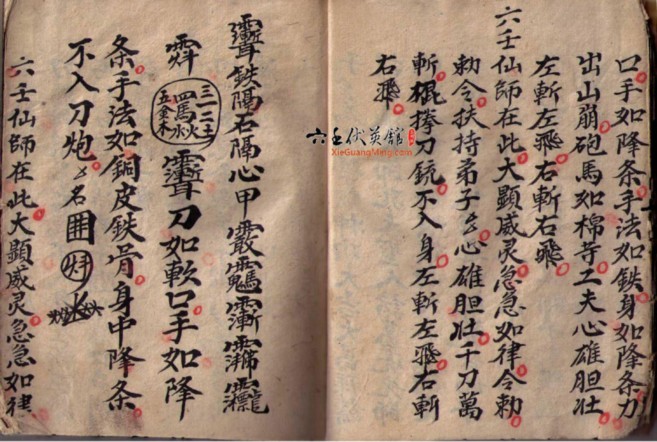 口手如降条手法如鉄身如降条刀
出山崩砲馬如棉寺工夫心雄胆壮
左斬左飛右斬右飛
六壬仙師在此大顕威灵急急如律令勅
勅令扶持弟子心雄胆壮千刀萬
斬棍拳刀銃不入身左斬左飛右斬
右飛
六壬伏英館
XieGuangMing.com
鉄隔石隔心甲
三一二土
四馬火
五金水木
刀如軟口手如降
条手法如銅皮鉄骨身中降条
不入刀炮名
六壬仙師在此大顕威灵急急如律